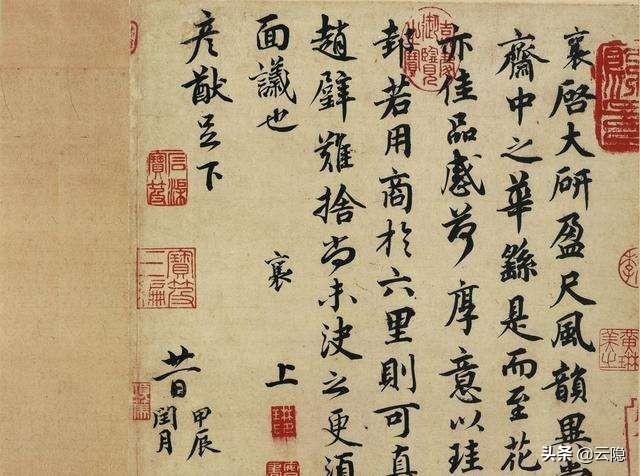 襄啓大研盈尺風韻異
齋中之華繇是而至花
亦佳品感荷厚意以珪
封若用商於六里則可真
趙璧難捨尚未決之更須
面議也
襄
上
彥猷足下
廿一日
甲辰
閏月
頭条 @云隐